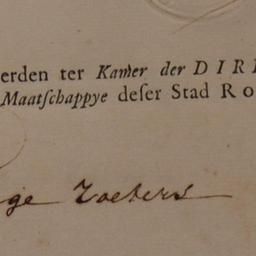 erden ter Kamer der DIRE
Maatſchappye deſer Stad Ro
ge Zoeters